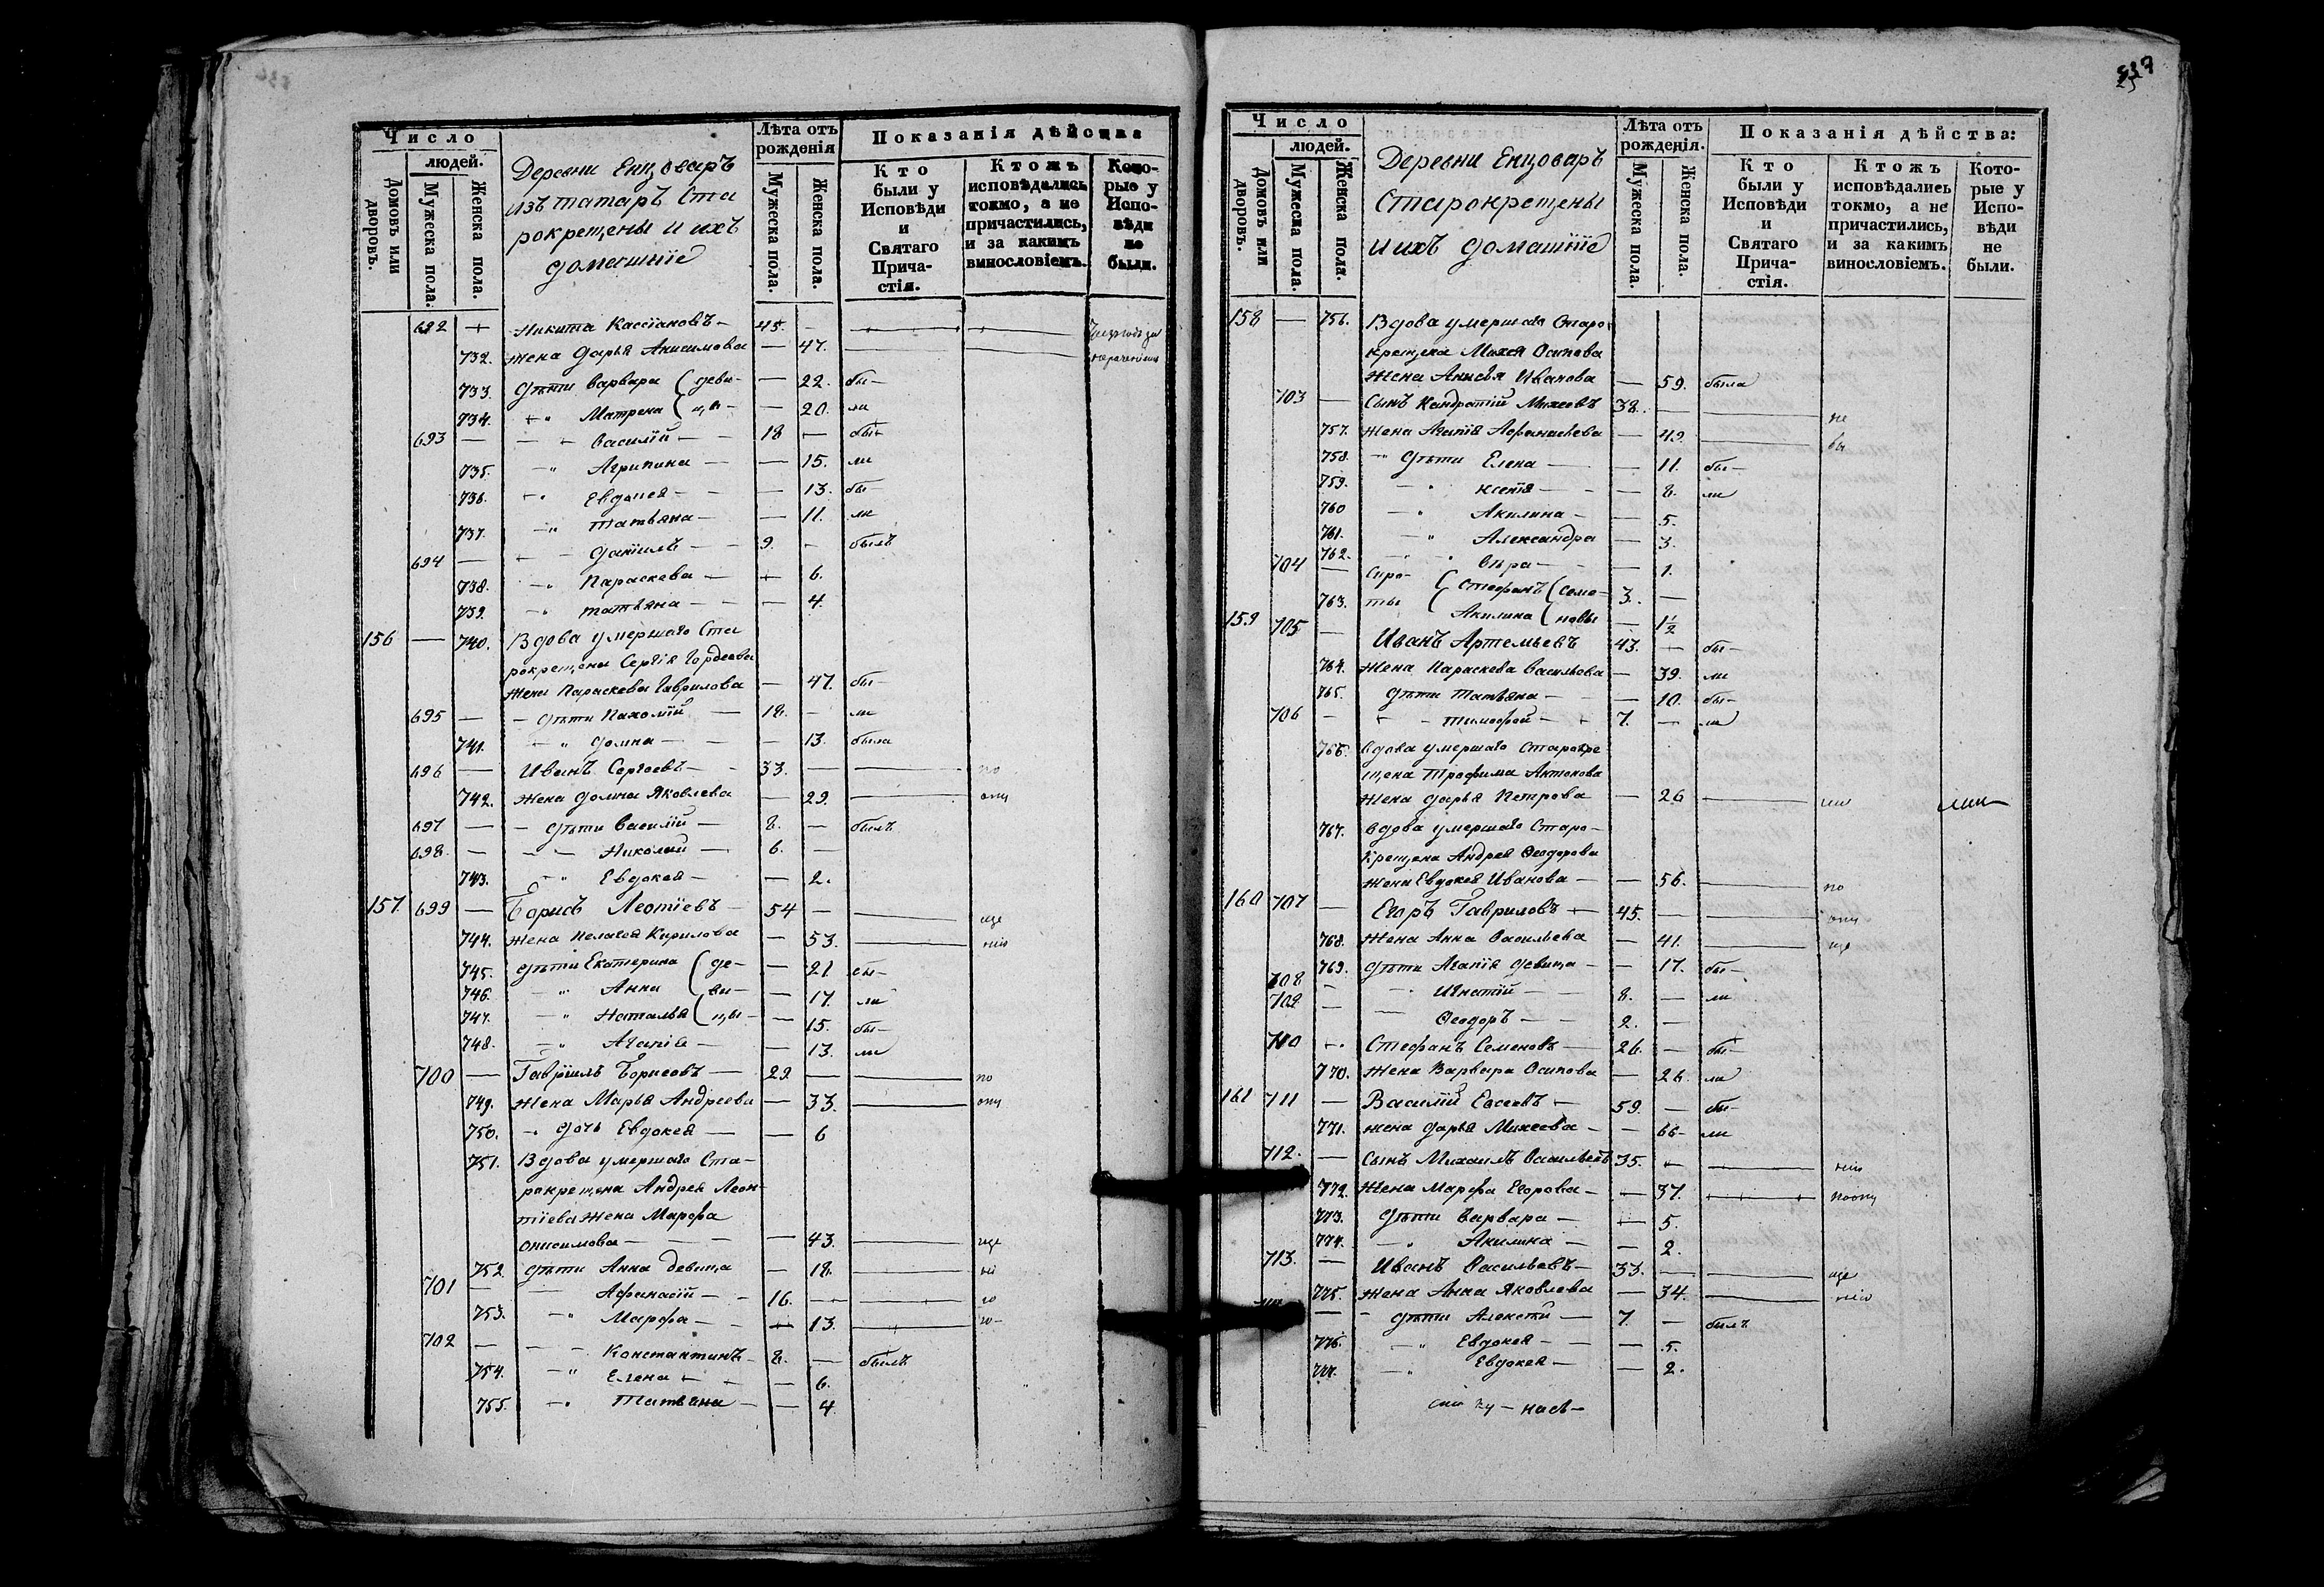 537
Число
людей.
Домовъ или дворовъ.
Мужеска пола.
Женска пола.
Деревни Енцоваръ
изъ татаръ Ста
рокрещены и ихъ
домашніе
Лѣта отъ рожденія
Мужеска пола.
Женска пола.
Показанія дѣйства
Кто были у Исповѣди и Святаго Прича-стія.
Ктожъ исповѣдались токмо, а не причастились, и за какимъ винословіемъ.
Кото-рые у Испо-вѣди не были.
692 Никита Кассіановъ 45.
732. жена Дарья Анисимова 47.
733. дѣти Варвара (деви- 22. бы-
734. " Матрена (цы- 20. ли
693 — Василій 18 — бы-
735. " Агрипина — 15. ли
736. " Евдокея — 13. бы-
737. " Татьяна — 11. ли
694 — Даніилъ 9. — былъ
738. " Параскева 6.
739. " Татьяна — 4.
156 — 740. Вдова умершаго Ста
рокрещена Сергія Гордеева
жена Параскева Гаврилова — 47. бы-
695 — дѣти Пахомій — 18. — ли
741. " Домна — 13. была
696 — Иванъ Сергеевъ 33. — по
742. жена Домна Яковлева — 29. опу
697 — дѣти Василій — 8. — былъ
698. — Николай — 6. —
743. " Евдокея — 2.
157 699 — Борисъ Леотіевъ — 54 — уще
744. жена Пелагея Кирилова — 53. нію
745. дѣти Екатерина (де- — 21 бы-
746. " Анна (ви- — 17. ли
747. " Наталья (цы- — 15. бы-
748. " Агапія — 13. ли
700 — Гавріилъ Борисовъ — 29 — по
749. жена Марья Андреева — 33. опу
750. " дочь Евдокея — 6
751. Вдова умершаго Ста-
рокрещена Андрея Леон-
тіева жена Марѳа
Онисимова — 43. уще
752 дѣти Анна девица — 18.
701 — Аѳанасій — 16.
753. " Марѳа — 13.
702 — Константинъ 8. — былъ
754. " Елена 6.
755. " Татьяна — 4.
Число
людей.
Домовъ или дворовъ.
Мужеска пола.
Женска пола.
Деревни Енцоваръ
Старокрещены
и ихъ домашніе
Лѣта отъ рожденія.
Мужеска пола.
Женска пола.
Показанія дѣйства:
Кто были у Исповѣди и Святаго Прича-стія.
Ктожъ исповѣдались токмо, а не причастились, и за какимъ винословіемъ.
Кото-рые у Испо-вѣди не были.
158 — 756. Вдова умершаго Старо
крещена Михея Осипова
жена Анисья Иванова — 59. была
703 — Сынъ Кандратій Михеевъ 38. — не
757. жена Агапія Аѳанасьева — 42. бы
758. " дѣти Елена — 11. бы-
759. " Ксенія — 8. ли
760 " Акилина — 5.
761. " Александра — 3.
762. " Вѣра — 1.
704 — Сиро- ( Стефанъ (Семе- 3. —
763. ты ( Акилина (новы — 1½
159 705 — Иванъ Артемьевъ 43. — бы-
764. жена Параскева Васильева — 39. ли
765. дѣти Татьяна — 10. бы-
706 — Тимоѳей — 7. — ли
766. вдова умершаго Старокре
щена Трофима Антонова
жена Дарья Петрова — 26
767. вдова умершаго Старо-
крещена Андрея Ѳеодорова
жена Евдокея Иванова — 56. по
160 707 — Егоръ Гавриловъ 45. — опу
768. жена Анна Васильева — 41. уще
769. дѣти Агапія девица — 17. бы-
708 — Игнатій — 8. — ли
709 — Ѳеодоръ — 2. —
710 — Стефанъ Семеновъ — 26. — бы-
770. жена Варвара Осипова — 26. ли
161 711 — Василій Евсеевъ 59. — бы-
771. жена Дарья Михеева — 66- ли
712. — Сынъ Михаилъ Васильевъ 35. нію
772. жена Марѳа Егорова — 37. поопу
773. дѣти Варвара — 5.
774. " Акилина — 2.
713. — Иванъ Васильевъ — 33. — уще
775. жена Анна Яковлева — 34. нію
— дѣти Алексѣй — 7. — былъ
776. " Евдокея — 5.
777. " Евдокея — 2.